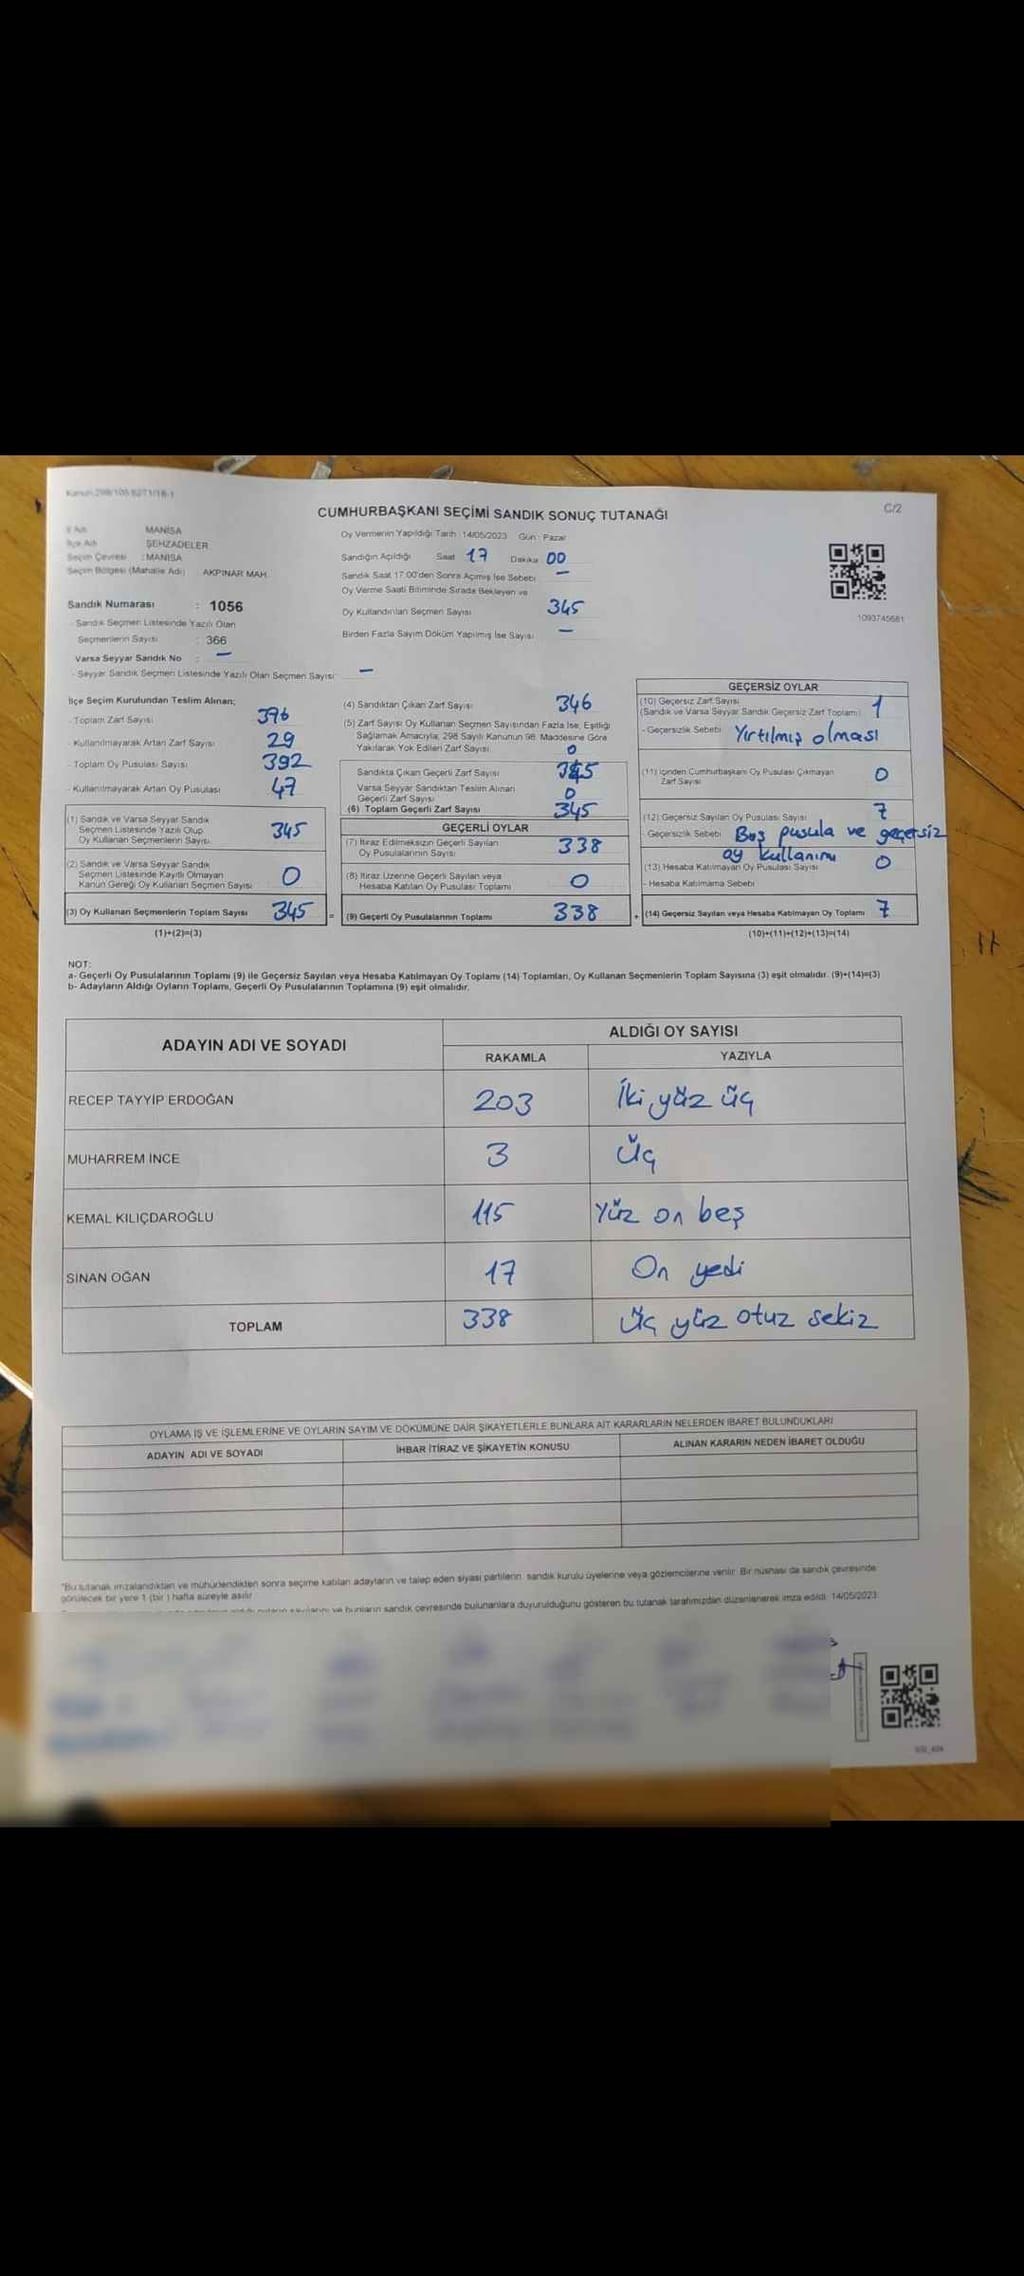 Kanun 298/105 6271/18-1
C/2
CUMHURBAŞKANI SEÇİMİ SANDIK SONUÇ TUTANAĞI
İl Adı MANİSA
İlçe Adı ŞEHZADELER
Seçim Çevresi : MANİSA
Seçim Bölgesi (Mahalle Adı) : AKPINAR MAH.
Sandık Numarası : 1056
- Sandık Seçmen Listesinde Yazılı Olan
Seçmenlerin Sayısı : 366
Varsa Seyyar Sandık No : -
- Seyyar Sandık Seçmen Listesinde Yazılı Olan Seçmen Sayısı -
Oy Vermenin Yapıldığı Tarih : 14/05/2023 Gün : Pazar
Sandığın Açıldığı Saat 17 Dakika 00
Sandık Saat 17:00'den Sonra Açımış İse Sebebi -
Oy Verme Saati Bitiminde Sırada Bekleyen ve
Oy Kullandırılan Seçmen Sayısı 345
Birden Fazla Sayım Döküm Yapılmış İse Sayısı -
1093745681
İlçe Seçim Kurulundan Teslim Alınan;
- Toplam Zarf Sayısı 396
- Kullanılmayarak Artan Zarf Sayısı 29
- Toplam Oy Pusulası Sayısı 392
- Kullanılmayarak Artan Oy Pusulası 47
(1) Sandık ve Varsa Seyyar Sandık
Seçmen Listesinde Yazılı Olup
Oy Kullanan Seçmenlerin Sayısı 345
(2) Sandık ve Varsa Seyyar Sandık
Seçmen Listesinde Kayıtlı Olmayan
Kanun Gereği Oy Kullanan Seçmen Sayısı 0
(3) Oy Kullanan Seçmenlerin Toplam Sayısı 345 =
(1)+(2)=(3)
(4) Sandıktan Çıkan Zarf Sayısı 346
(5) Zarf Sayısı Oy Kullanan Seçmen Sayısından Fazla İse, Eşitliği
Sağlamak Amacıyla, 298 Sayılı Kanunun 98. Maddesine Göre
Yakılarak Yok Edilen Zarf Sayısı 0
Sandıkta Çıkan Geçerli Zarf Sayısı 345
Varsa Seyyar Sandıktan Teslim Alınan
Geçerli Zarf Sayısı 0
(6) Toplam Geçerli Zarf Sayısı 345
GEÇERLİ OYLAR
(7) İtiraz Edilmeksizin Geçerli Sayılan
Oy Pusulalarının Sayısı 338
(8) İtiraz Üzerine Geçerli Sayılan veya
Hesaba Katılan Oy Pusulası Toplamı 0
(9) Geçerli Oy Pusulalarının Toplamı 338 +
GEÇERSİZ OYLAR
(10) Geçersiz Zarf Sayısı
(Sandık ve Varsa Seyyar Sandık Geçersiz Zarf Toplamı) 1
- Geçersizlik Sebebi Yırtılmış olması
(11) İçinden Cumhurbaşkanı Oy Pusulası Çıkmayan
Zarf Sayısı 0
(12) Geçersiz Sayılan Oy Pusulası Sayısı 7
- Geçersizlik Sebebi Boş pusula ve geçersiz
oy kullanımı
(13) Hesaba Katılmayan Oy Pusulası Sayısı 0
- Hesaba Katılmama Sebebi
(14) Geçersiz Sayılan veya Hesaba Katılmayan Oy Toplamı 7
(10)+(11)+(12)+(13)=(14)
NOT:
a- Geçerli Oy Pusulalarının Toplamı (9) ile Geçersiz Sayılan veya Hesaba Katılmayan Oy Toplamı (14) Toplamları, Oy Kullanan Seçmenlerin Toplam Sayısına (3) eşit olmalıdır. (9)+(14)=(3)
b- Adayların Aldığı Oyların Toplamı, Geçerli Oy Pusulalarının Toplamına (9) eşit olmalıdır.
ADAYIN ADI VE SOYADI ALDIĞI OY SAYISI
RAKAMLA YAZIYLA
RECEP TAYYİP ERDOĞAN 203 İki yüz üç
MUHARREM İNCE 3 Üç
KEMAL KILIÇDAROĞLU 115 Yüz on beş
SİNAN OĞAN 17 On yedi
TOPLAM 338 Üç yüz otuz sekiz
OYLAMA İŞ VE İŞLEMLERİNE VE OYLARIN SAYIM VE DÖKÜMÜNE DAİR ŞİKAYETLERLE BUNLARA AİT KARARLARIN NELERDEN İBARET BULUNDUKLARI
ADAYIN ADI VE SOYADI İHBAR İTİRAZ VE ŞİKAYETİN KONUSU ALINAN KARARIN NEDEN İBARET OLDUĞU
"Bu tutanak imzalandıktan ve mühürlendikten sonra seçime katılan adayların ve talep eden siyasi partilerin sandık kurulu üyelerine veya gözlemcilerine verilir. Bir nüshası da sandık çevresinde
görülecek bir yere 1 (bir ) hafta süreyle asılır
sayılarını ve bunların sandık çevresinde bulunanlara duyurulduğunu gösteren bu tutanak tarafımızdan düzenlenerek imza edildi. 14/05/2023